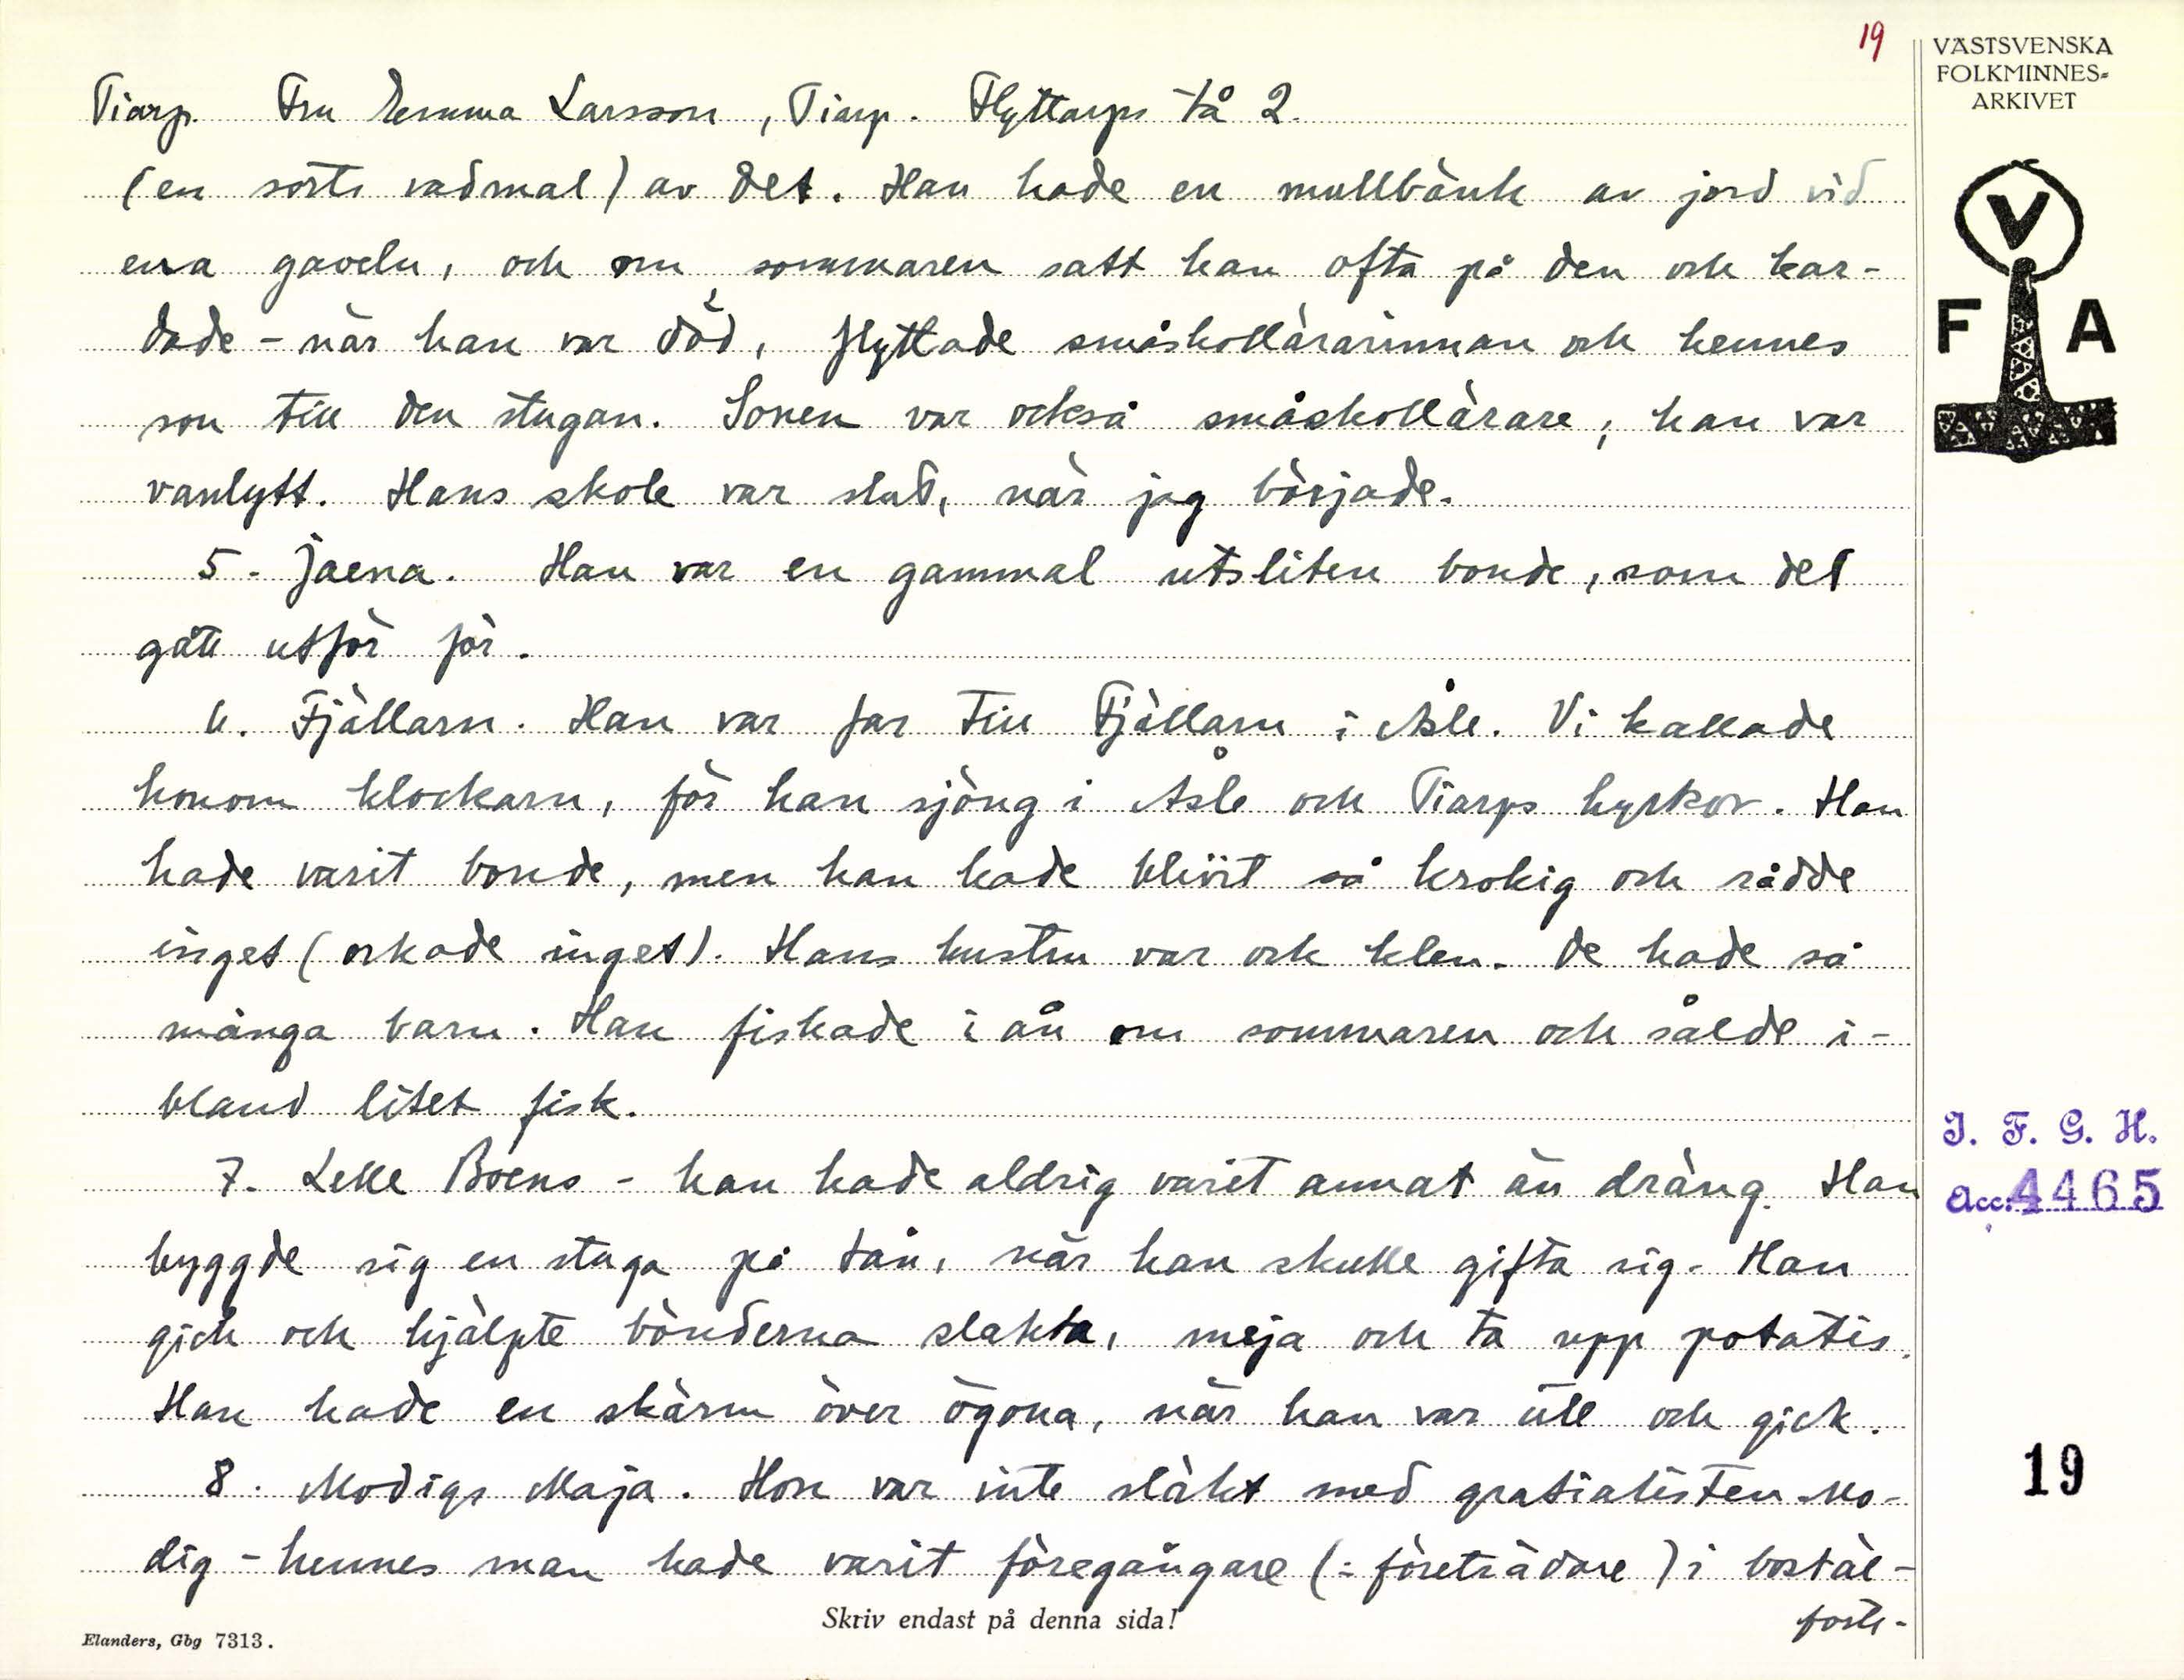 19
VÄSTSVENSKA
FOLKMINNES-
ARKIVET
V
F A
Tiarp. Fru Emma Larsson, Tiarp. Flyttarps tå 2.
(en sorts vadmal) av det. Han hade en mullbänk av jord vid
ena gaveln, och om sommaren satt han ofta på den och kar-
dade - när han var död, flyttade småskollärarinnan och hennes
son till den stugan. Sonen var också småskollärare; han var
vanlytt. Hans skola var slut, när jag började.
5. Jaena. Han var en gammal utsliten bonde, som det
gått utför för.
6. Fjällarn. Han var far till Fjällarn i Åsle. Vi kallade
honom klockarn, för han sjöng i Åsle och Tiarps kyrkor. Han
hade varit bonde, men han hade blivit så krokig och rådde
inget (orkade inget). Hans hustru var och klen. De hade så
många barn. Han fiskade i ån om sommaren och sålde i-
bland litet fisk.
7. Lelle Boens - han hade aldrig varit annat än dräng. Han
byggde sig en stuga på tån, när han skulle gifta sig. Han
gick och hjälpte bönderna slakta, meja och ta upp potatis.
Han hade en skärm över ögona, när han var ute och gick.
8. Modigs Maja. Hon var inte släkt med gratialisten Mo-
dig - hennes man hade varit föregångare (= företrädare) i bostäl-
forts-
Skriv endast på denna sida!
Elanders, Gbg 7313.
I. F. G. H.
Acc. 4465
19